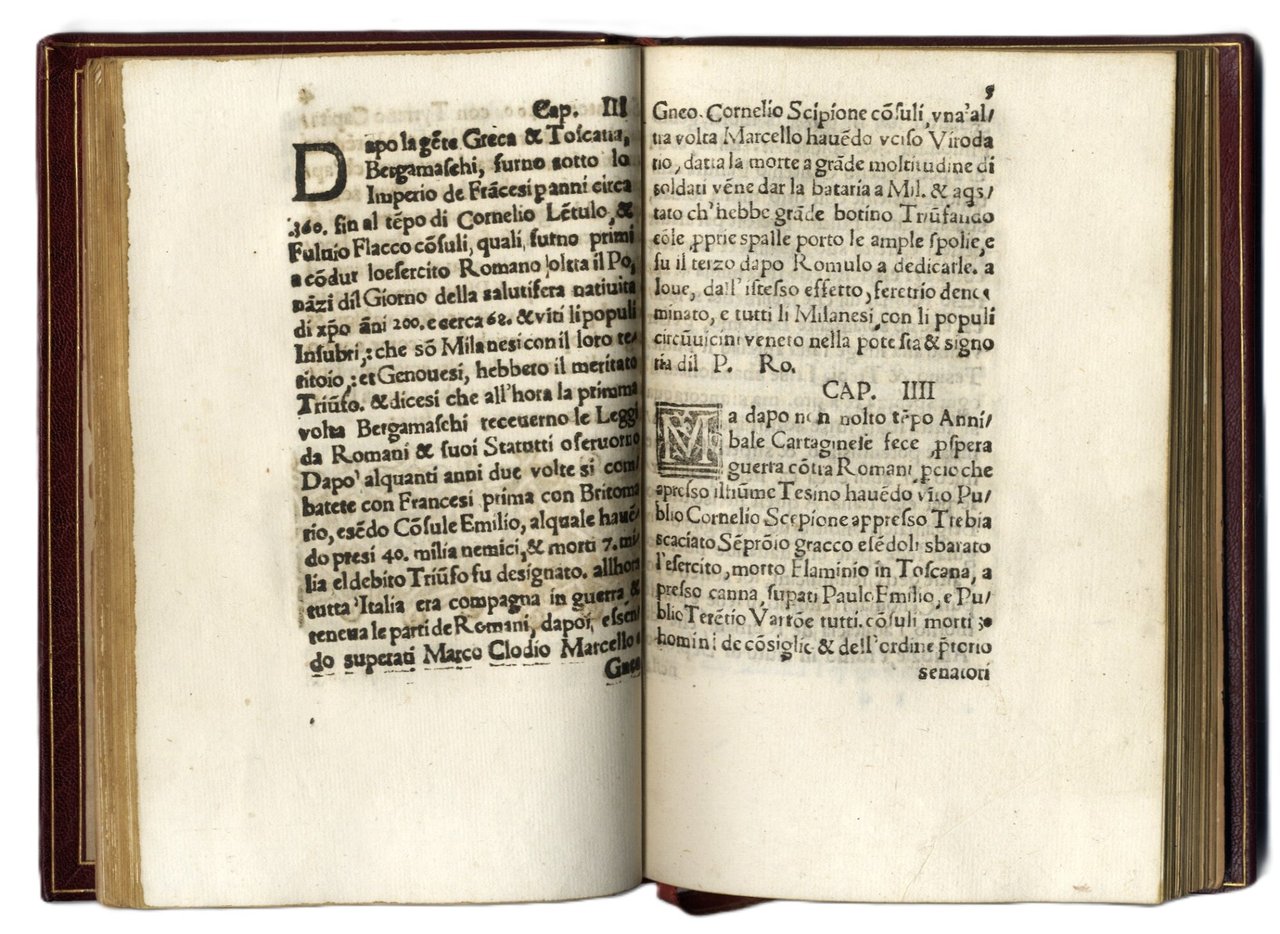 Cap. III
Dapo la gẽte Greca & Toscana,
Bergamaſchi, furno sotto lo
Imperio de Frãcesi p anni circa
.360. fin al tẽpo di Cornelio Lẽtulo, &
Fuluio Flacco cõſuli, quali, furno primi
a cõdur loesercito Romano oltra il Po,
nãzi dil Giorno della salutifera natiuita
di xp̃o ãni 200. e cerca 68. & viti li populi
Inſubri,: che sõ Milanesi con il loro te⸗
ritoio,: et Genoueſi, hebbero il meritato
Triũfo. & dicesi che all'hora la primma
volta Bergamaſchi receuerno le Leggi
da Romani & ſuoi Statutti oſeruorno
Dapo' alquanti anni due volte si com⸗
batete con Francesi prima con Britoma
rio, esẽdo Cõſule Emilio, alquale hauẽ⸗
do preſi 40. milia nemici, & morti 7. mi⸗
lia el debito Triũfo fu designato. allhora
tutta 'Italia era compagna in guerra &
teneua le parti de Romani, dapoi, eſſen⸗
do superati Marco Clodio Marcello
Gneo
5
Gneo. Cornelio Scipione cõſuli, vna'al⸗
tra volta Marcello hauẽdo vciso Viroda
rio, datta la morte a grãde moltitudine di
soldati vẽne dar la bataria a Mil. & aqs⸗
tato ch'hebbe grãde botino Triũfando
cõle pprie spalle porto le ample ſpolie, e
fu il terzo dapo Romulo a dedicarle. a
Ioue, dall'iſteſso effetto, feretrio deno
minato, e tutti li Milanesi, con li populi
circũuicini veneto nella poteſta & signo
ria dil P. Ro.
CAP. IIII
Ma dapo non nolto tẽpo Anni⸗
bale Cartagineſe fece pspera
guerra cõtra Romani pcio che
apreſso il fiũme Tesino hauẽdo vĩto Pu⸗
blio Cornelio Scepione appreſso Trebia
scaciato Sẽprõio gracco esẽdoli sbarato
l'eſercito, morto Flaminio in Toſcana, a
preſso canna, ſupati Paulo Emilio, e Pu⸗
blio Terẽtio Varrõe tutti. cõſuli morti 30
homini de cõsiglie & dell'ordine p̃torio
senatori